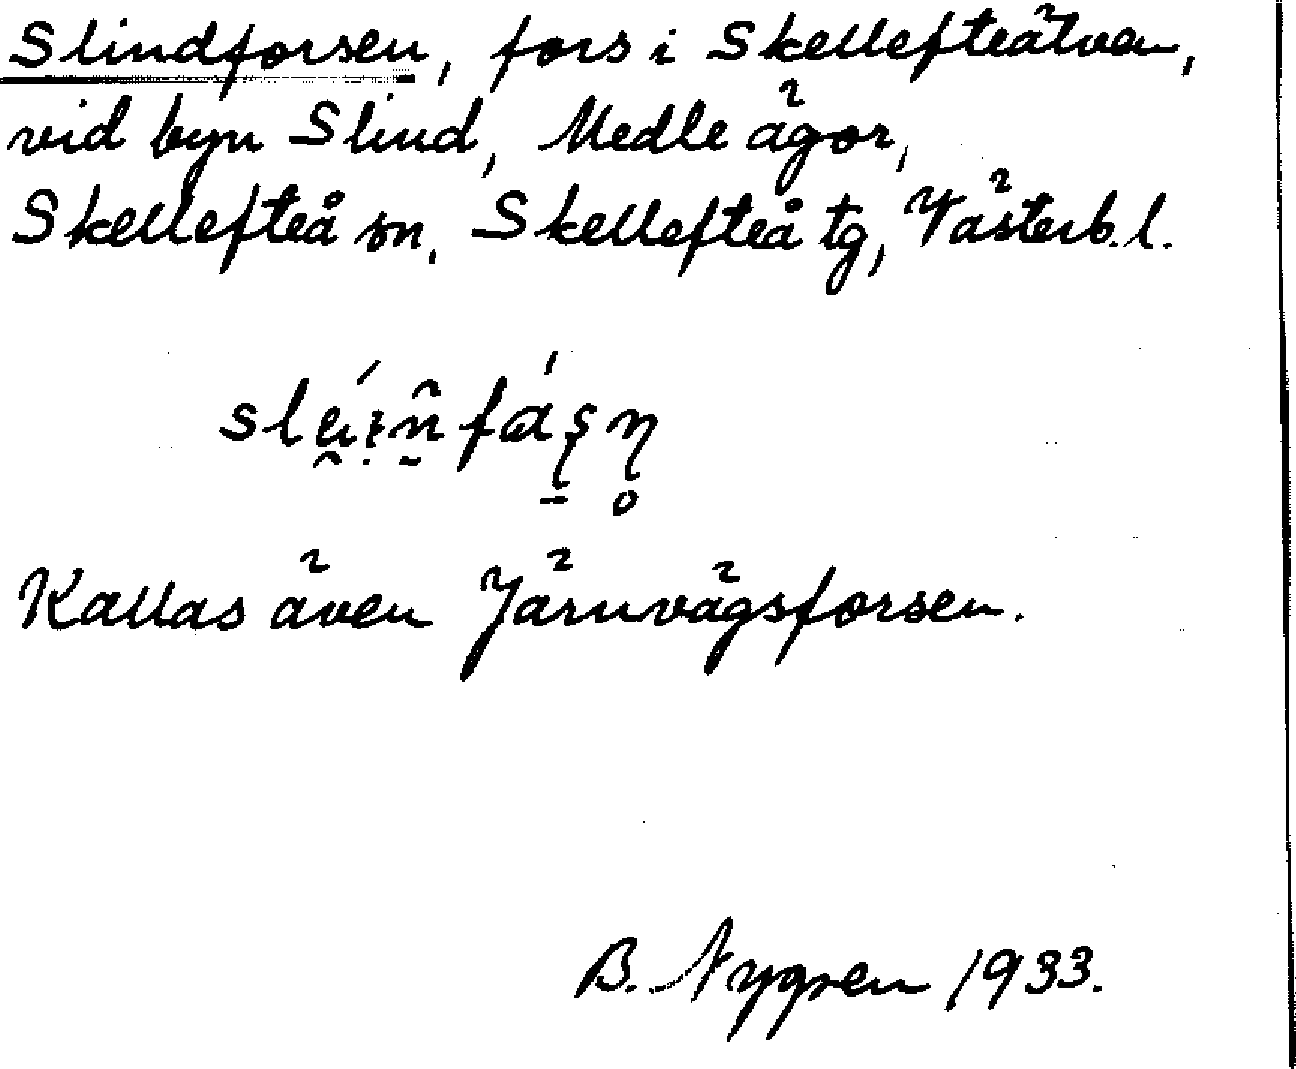 Slindforsen, fors i Skellefteälven,
vid byn Slind, Medle ägor,
Skellefteå sn, Skellefteå tg, Västerb. l.
Kallas även Järnvägsforsen.
B. Nygren 1933.